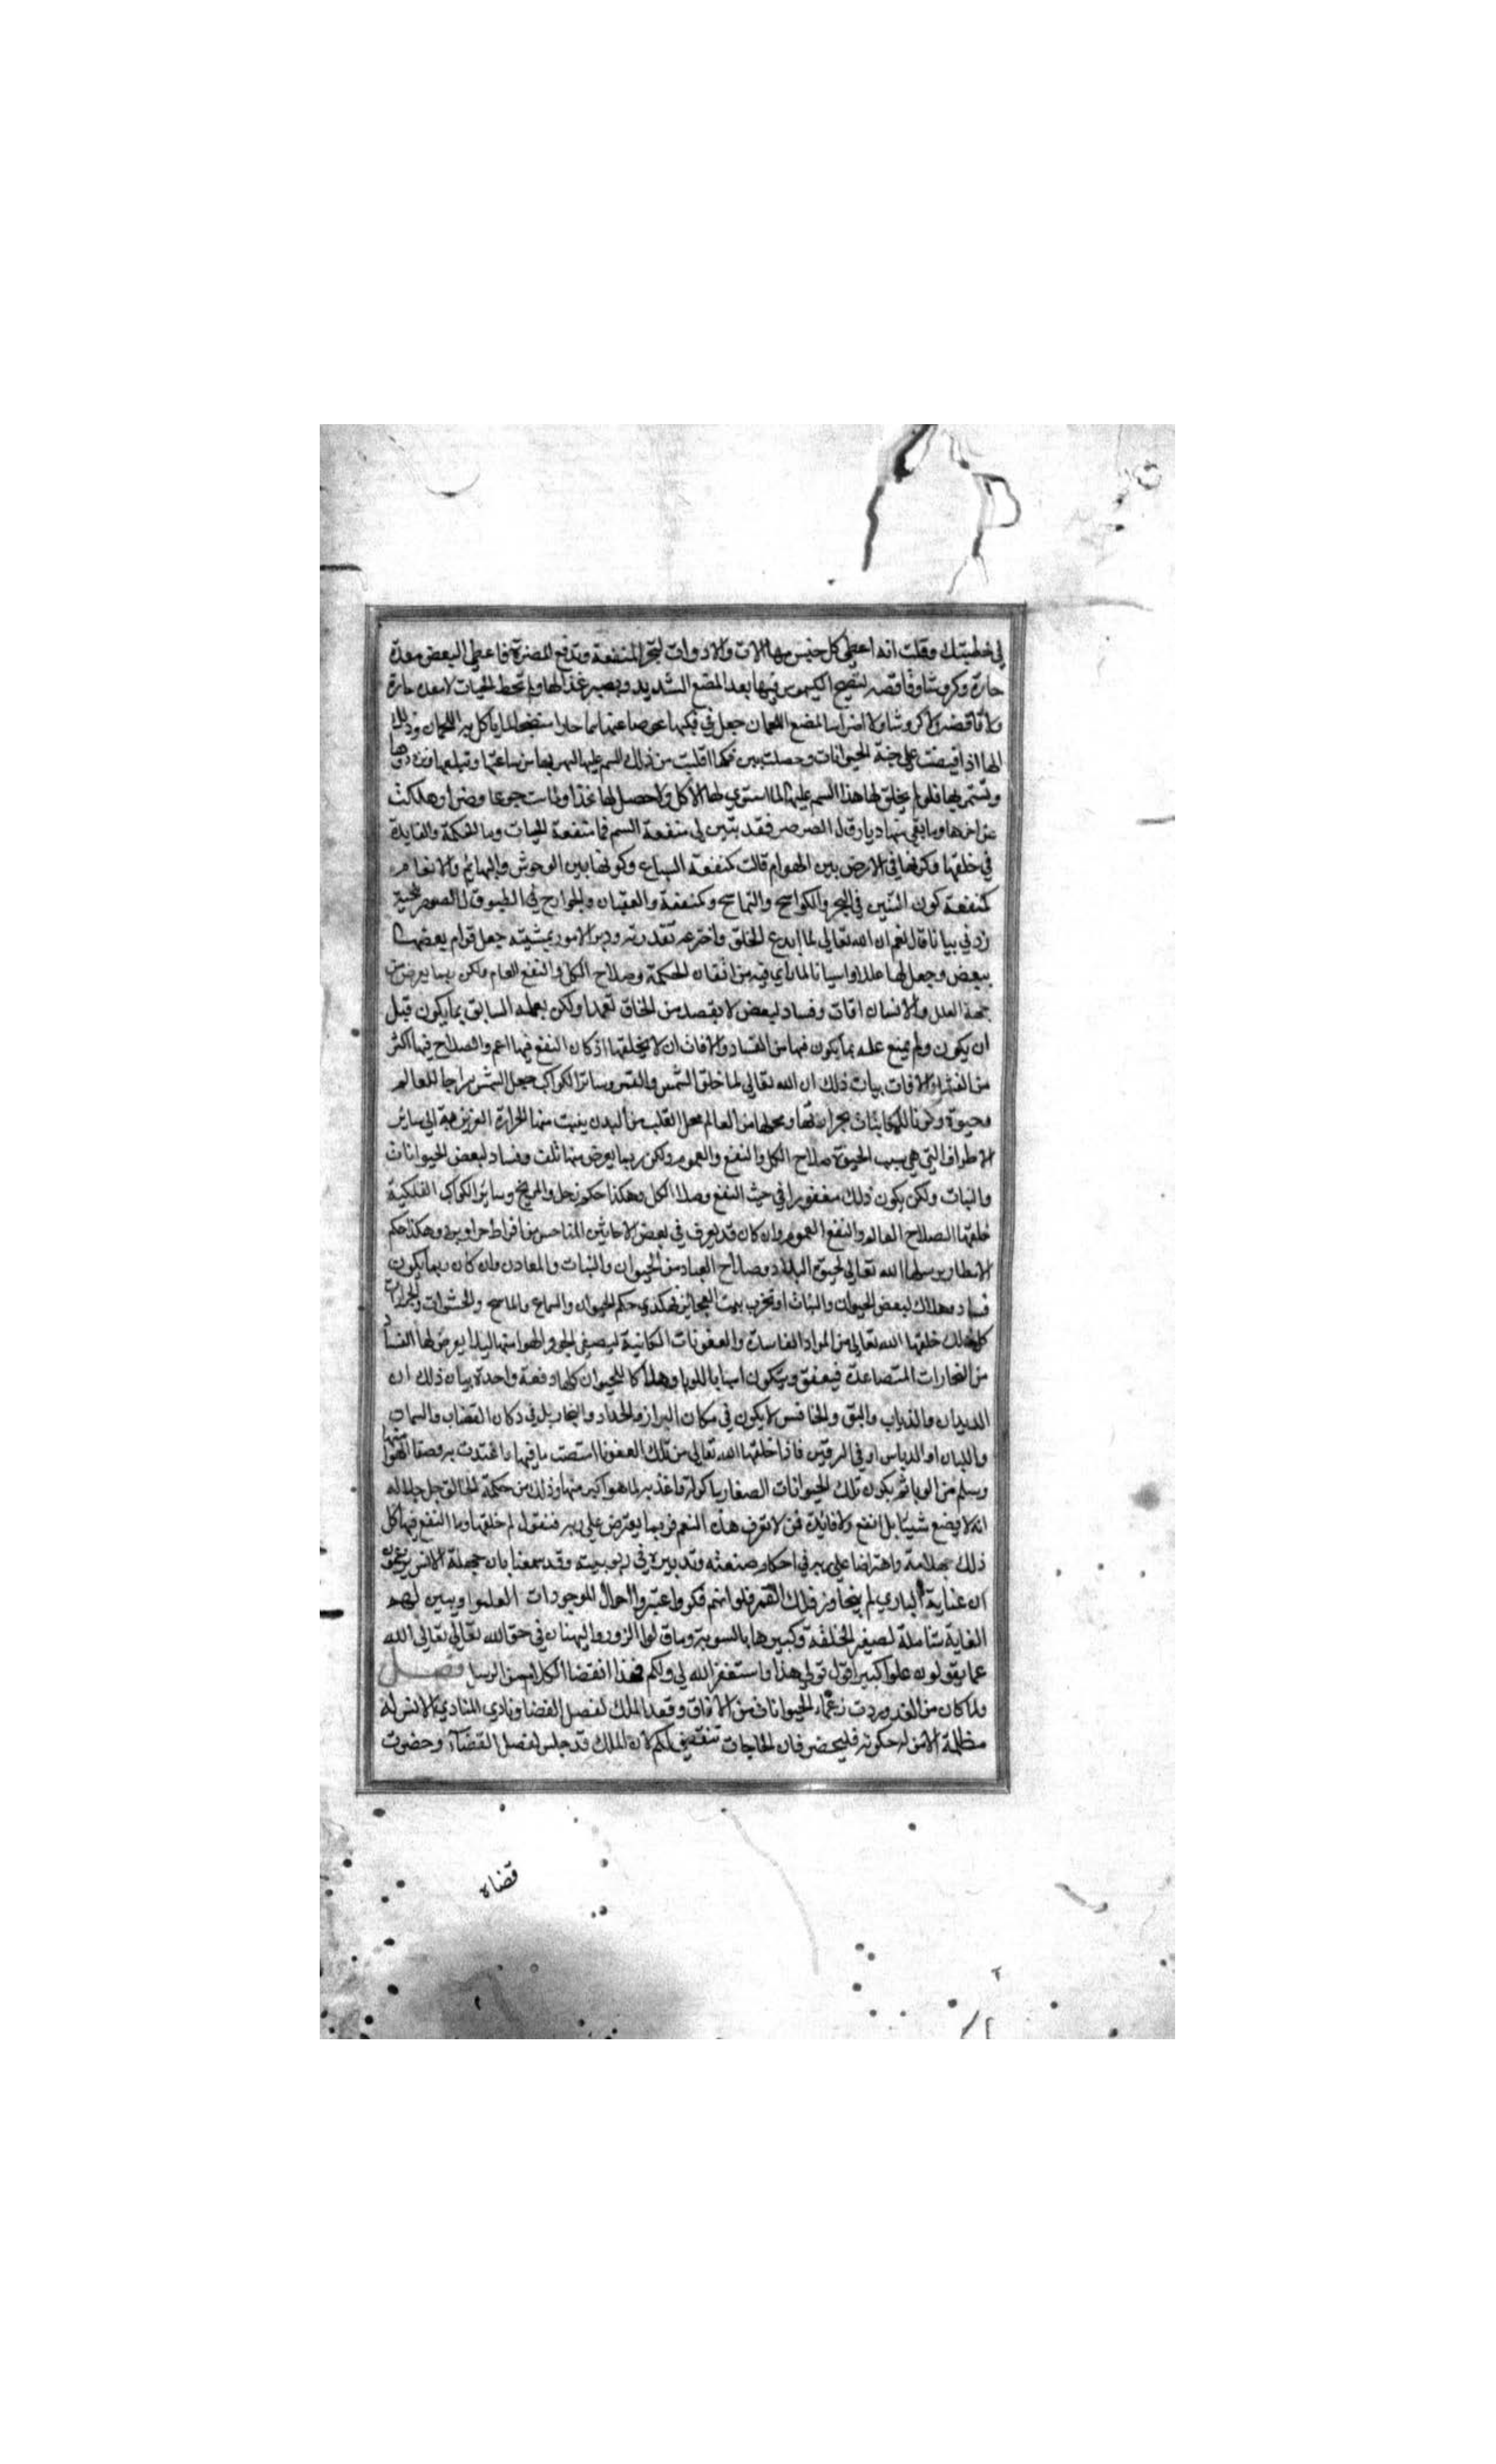 في خطبتك وقلت انه اعطى كل جنس منها الالات والادوات لتجر المنفعة وتدفع المضرة فاعطى البعض معدة
حارة وكروشا وقانصه لينضج الكيموس فيها بعد المضغ الشديد ويصير غذا لها ولم تعط الحيات لا معدة حارة
ولا قانصه ولا كروشا ولا اضراسا لمضغ اللحمان جعل في فكيها عوضا عنها سما حارا منضجا لما ياكل من اللحمان وذلك
انها اذا قبضت على جثة الحيوانات وحصلت بين فكيها اقلبت من ذلك السم عليها ليهريها من ساعتها وتبلعها وتزدردها
وتستمريها فلو لم يخلق لها هذا السم عليها لما استوى لها الاكل ولا حصل لها غذا ولماتت جوعا وضرا وهلكت
عن اخرها وما بقي منها ديار قال الصرصر فقد تبين لي منفعة السم فما منفعة الحيات وما الحكمة والفايدة
في خلقها وكونها في الارض بين الهوام قالت كمنفعة السباع وكونها بين الوحوش والبهائم والانعام
كمنفعة كون التنين في البحر والكواسج والتماسيح وكمنفعة والعقبان والجوارح في الطيور قال الصرصر للحية
زدني بيانا قال نعم ان الله تعالى لما ابدع الخلق واخترعه بقدرته ودبر الامور بمشيته جعل قوام بعضها
ببعض وجعل لها عللا واسبابا لما راي فيه من اتقان الحكمة وصلاح الكل والنفع العام ولكن ربما يعرض من
جهة العلل والانسان افات وفساد لبعض لا بقصد من الخلاق تعمدا ولكن بعلمه السابق بما يكون قبل
ان يكون ولم يمنع علمه بما يكون فيها من الفساد والافات ان لا يخلقها اذ كان النفع فيها اعم والصلاح فيها اكثر
من الفساد والافات بيان ذلك ان الله تعالى لما خلق الشمس والقمر وساير الكواكب جعل الشمس سراجا للعالم
وحيوة وكونا للكائنات بحرارتها ومحلها من العالم محل القلب من البدن ينبت منها الحرارة الغريزية الى سائر
الاطراف التي هي سبب الحيوة صلاح الكل والنفع والعموم ولكن ربما يعرض منها تلف وفساد لبعض الحيوانات
والنبات ولكن يكون ذلك مغفورا في حيث النفع وصلاح الكل وهكذا حكم زحل والمريخ وسائر الكواكب الفلكية
خلقها لصلاح العالم والنفع العموم وان كان قد يعرف في بعض الاحائين المناحس من افراط حر او برد وهكذا حكم
الامطار يرسلها الله تعالى لحيوة البلاد وصلاح العباد من الحيوان والنبات والمعادن وان كان ربما يكون
فساد وهلاك لبعض الحيوان والنبات او تخرب بيت العجائز فهكذي حكم الحيوان والسباع والتماسيح والحشرات والجرارات
كل ذلك خلقها الله تعالى من المواد الفاسدة والعفونات الكائنة ليصفى الجو والهوا منها ليلا يعرض لها الفساد
من البخارات المتصاعدة فيعفن ويتكون اسبابا للوبا وهلاكا للحيوان كلها دفعة واحدة بيان ذلك ان
الديدان والذباب والبق والخنافس لا يكون في مكان البزاز والحداد والنجار بل في دكان القصاب والسمان
واللبان او الدباس او في السرقين فاذا خلقها الله تعالى من تلك العفونات امتصت ما فيها واغتدت به وصفا الهوا منها
وسلم من الوبا ثم يكون تلك الحيوانات الصغار ماكولة واغذية لما هو اكبر منها وذلك من حكمة الخالق جل جلاله
انه لا يضع شيئا بلا نفع ولا فايدة فمن لا يعرف هذه النعم فربما يعترض على ربه فنقول لم خلقها وما النفع فيها كل
ذلك جهلا منه واعتراضا على ربه في احكام صنعته وتدبيره في ربوبيته وقد سمعنا بان جهلة الانس يزعمون
ان عناية الباري لم يتجاوز فلك القمر فلو انهم فكروا واعتبروا احوال الموجودات لعلموا ويبين لهم
العناية شاملة لصغير الخلقة وكبيرها بالسوية وما قالوا الزور والبهتان في حق الله تعالى تعالى الله
عما يقولون علوا كبيرا اقول قولي هذا واستغفر الله لي ولكم فهذا انقضا الكلام من الرسل فصل
ولما كان من الغد وردت زعماء الحيوانات من الافاق وقعد الملك لفصل القضا ونادى المنادي الا من له
مظلمة الا من له حكومة فليحضر فان الحاجات تنقضي لكم لان الملك قد جلس لفصل القضاء وحضرت
قضاه